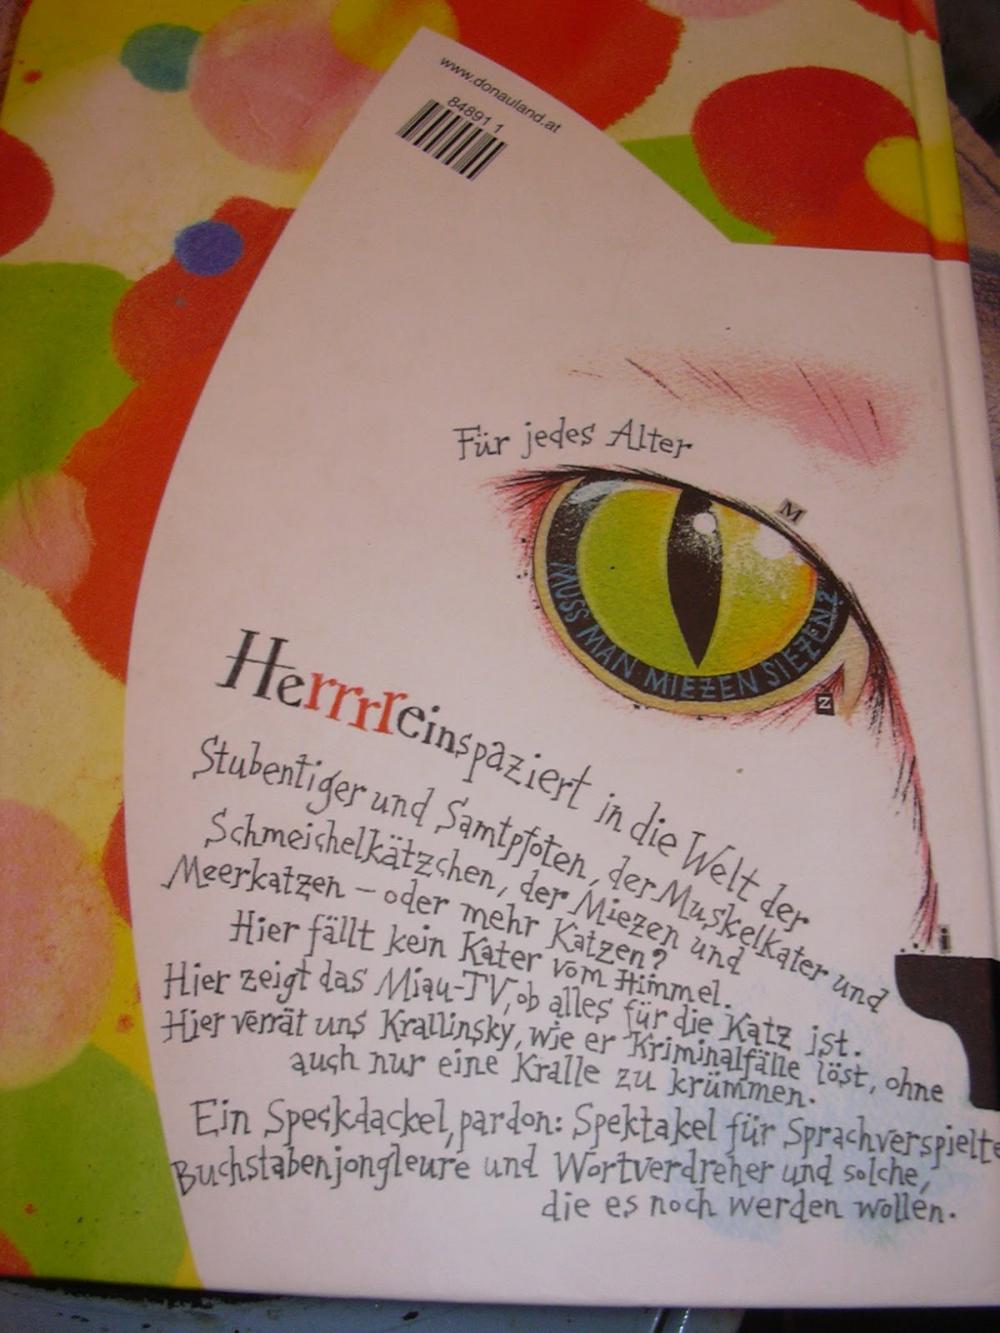 www.donauland.at
84891 1
Für jedes Alter
M
MUSS MAN MIEZEN SIEZEN?
z
Herrrreinspaziert in die Welt der
Stubentiger und Samtpfoten, der Muskelkater und
Schmeichelkätzchen, der Miezen und
Meerkatzen – oder mehr Katzen?
Hier fällt kein Kater vom Himmel.
Hier zeigt das Miau-TV, ob alles für die Katz ist.
Hier verrät uns Krallinsky, wie er Kriminalfälle löst, ohne
auch nur eine Kralle zu krümmen.
Ein Speckdackel, pardon: Spektakel für Sprachverspielte
Buchstabenjongleure und Wortverdreher und solche,
die es noch werden wollen.
i